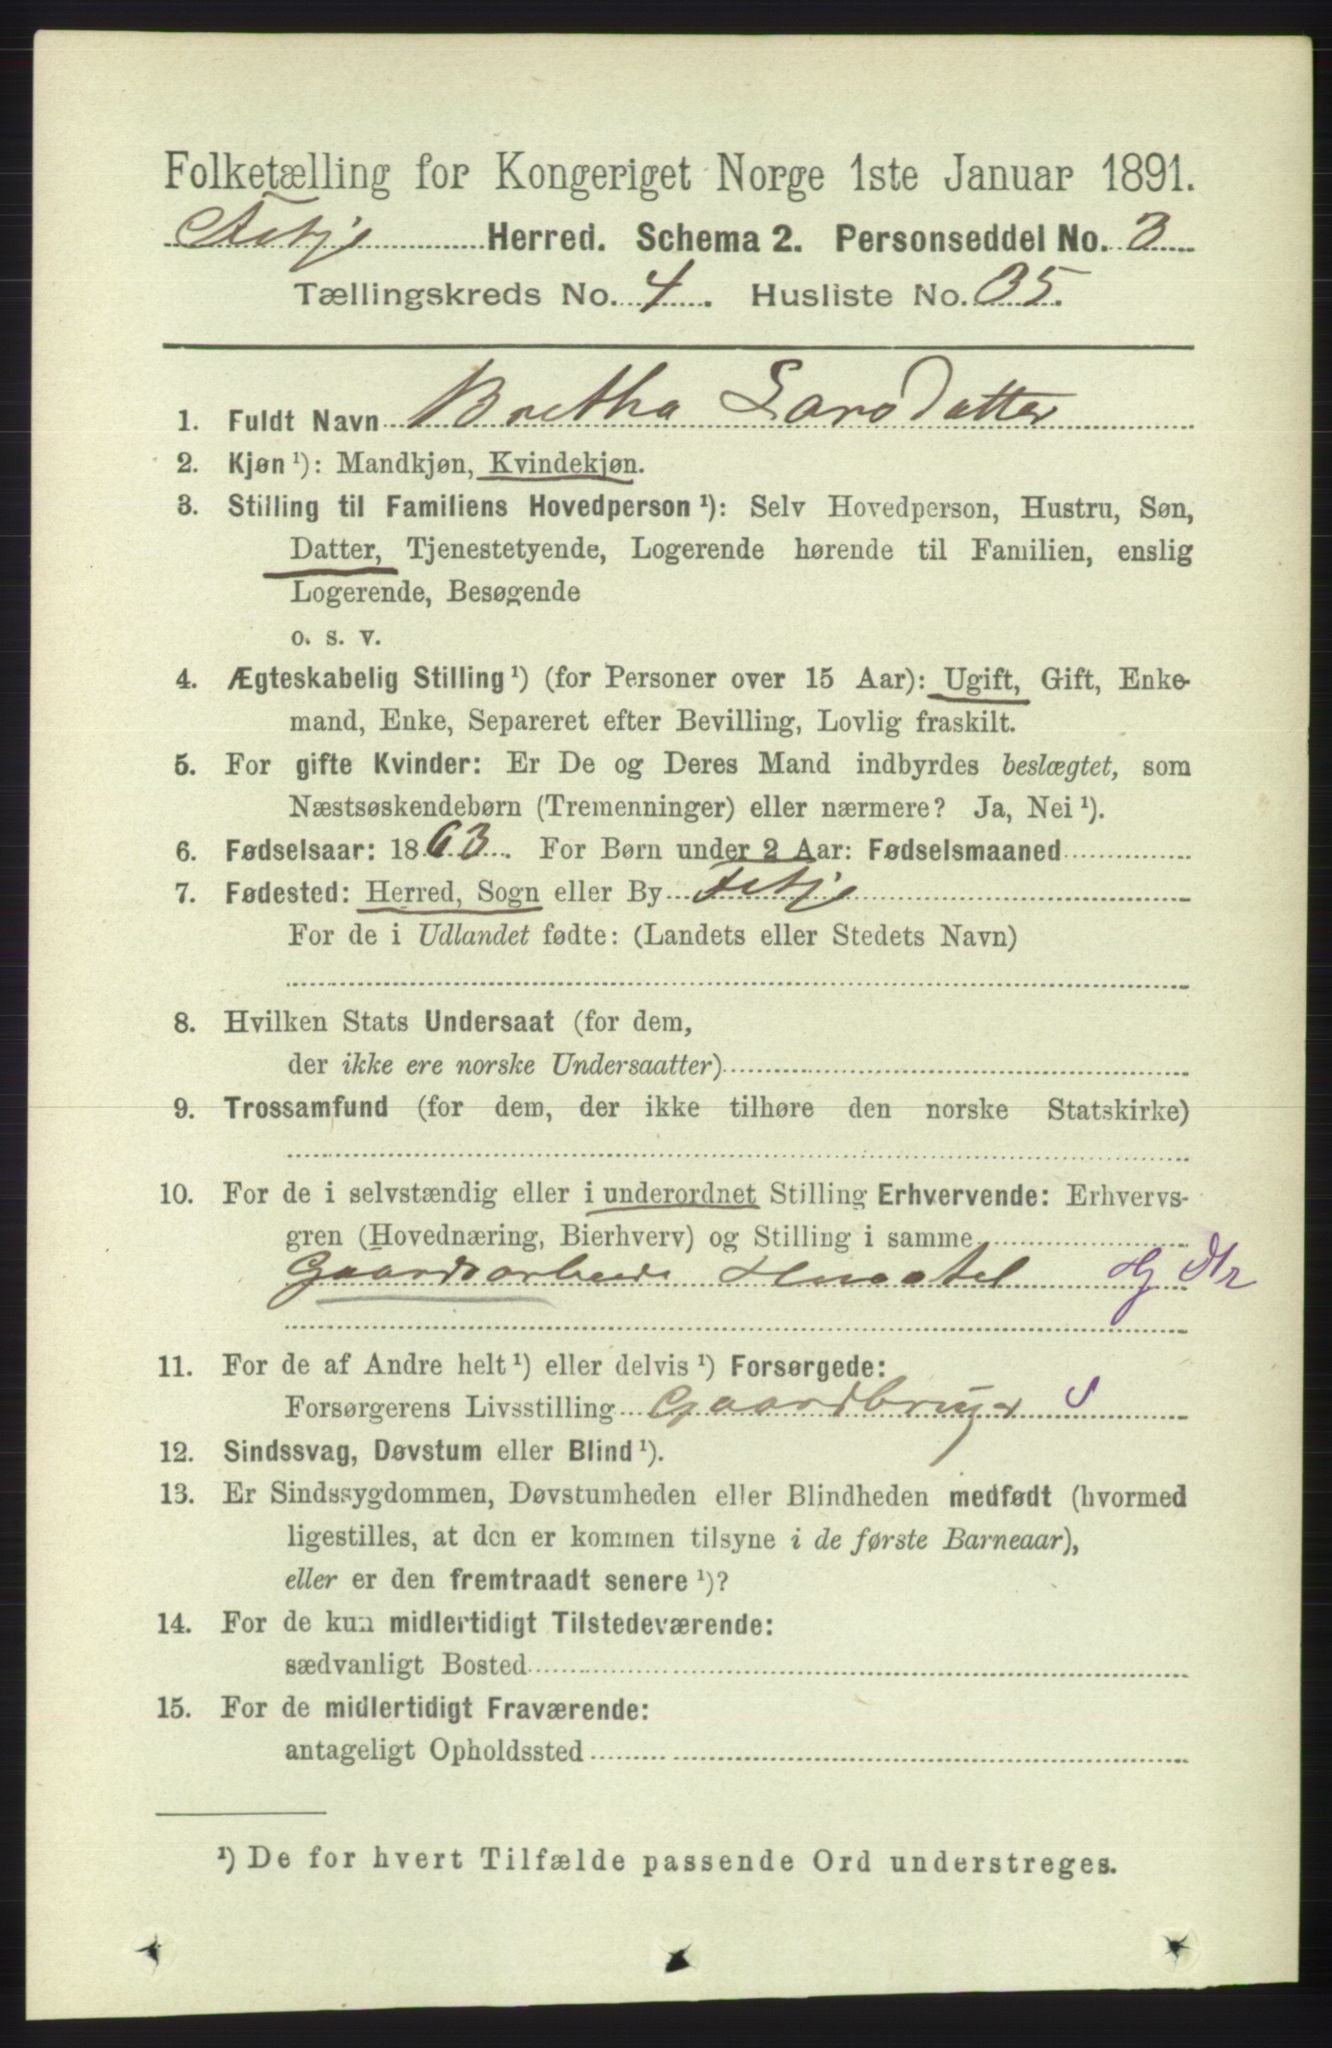 Folketælling for Kongeriget Norge 1ste Januar 1891.
Fitje Herred. Schema 2. Personseddel No. 3
Tællingskreds No. 4. Husliste No. 35.
1. Fuldt Navn Bretha Larsdatter
2. Kjøn ¹): Mandkjøn, Kvindekjøn.
3. Stilling til Familiens Hovedperson ¹): Selv Hovedperson, Hustru, Søn,
Datter, Tjenestetyende, Logerende hørende til Familien, enslig
Logerende, Besøgende
o. s. v.
4. Ægteskabelig Stilling ¹) (for Personer over 15 Aar): Ugift, Gift, Enke-
mand, Enke, Separeret efter Bevilling, Lovlig fraskilt.
5. For gifte Kvinder: Er De og Deres Mand indbyrdes beslægtet, som
Næstsøskendebørn (Tremenninger) eller nærmere? Ja, Nei ¹).
6. Fødselsaar: 1863. For Børn under 2 Aar: Fødselsmaaned
7. Fødested: Herred, Sogn eller By Fitje
For de i Udlandet fødte: (Landets eller Stedets Navn)
8. Hvilken Stats Undersaat (for dem,
der ikke ere norske Undersaatter)
9. Trossamfund (for dem, der ikke tilhøre den norske Statskirke)
10. For de i selvstændig eller i underordnet Stilling Erhvervende: Erhvervs-
gren (Hovednæring, Bierhverv) og Stilling i samme
Gaardsarbeide Huusstel Hg Dtr
11. For de af Andre helt ¹) eller delvis ¹) Forsørgede:
Forsørgerens Livsstilling Gaardbruger S
12. Sindssvag, Døvstum eller Blind ¹).
13. Er Sindssygdommen, Døvstumheden eller Blindheden medfødt (hvormed
ligestilles, at den er kommen tilsyne i de første Barneaar),
eller er den fremtraadt senere ¹)?
14. For de kun midlertidigt Tilstedeværende:
sædvanligt Bosted
15. For de midlertidigt Fraværende:
antageligt Opholdssted
¹) De for hvert Tilfælde passende Ord understreges.